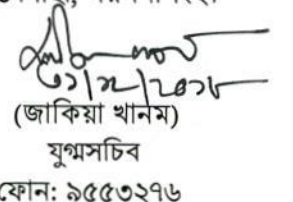 ৩১/১২/২০১৮
(জাকিয়া খানম)
যুগ্মসচিব
ফোন: ৯৫৫৩২৭৬